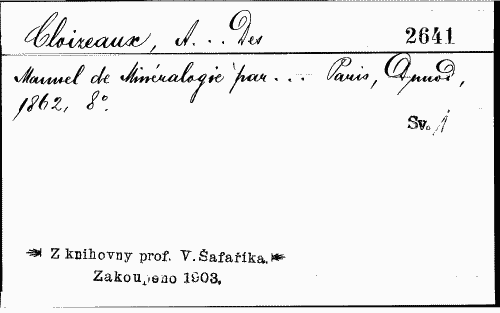 Cloizeaux, A... Des 2641
Manuel de Minéralogie par... Paris, Dunod,
1862, 8°.
Sv. 1
Z knihovny prof. V. Šafaříka.
Zakoupeno 1903.